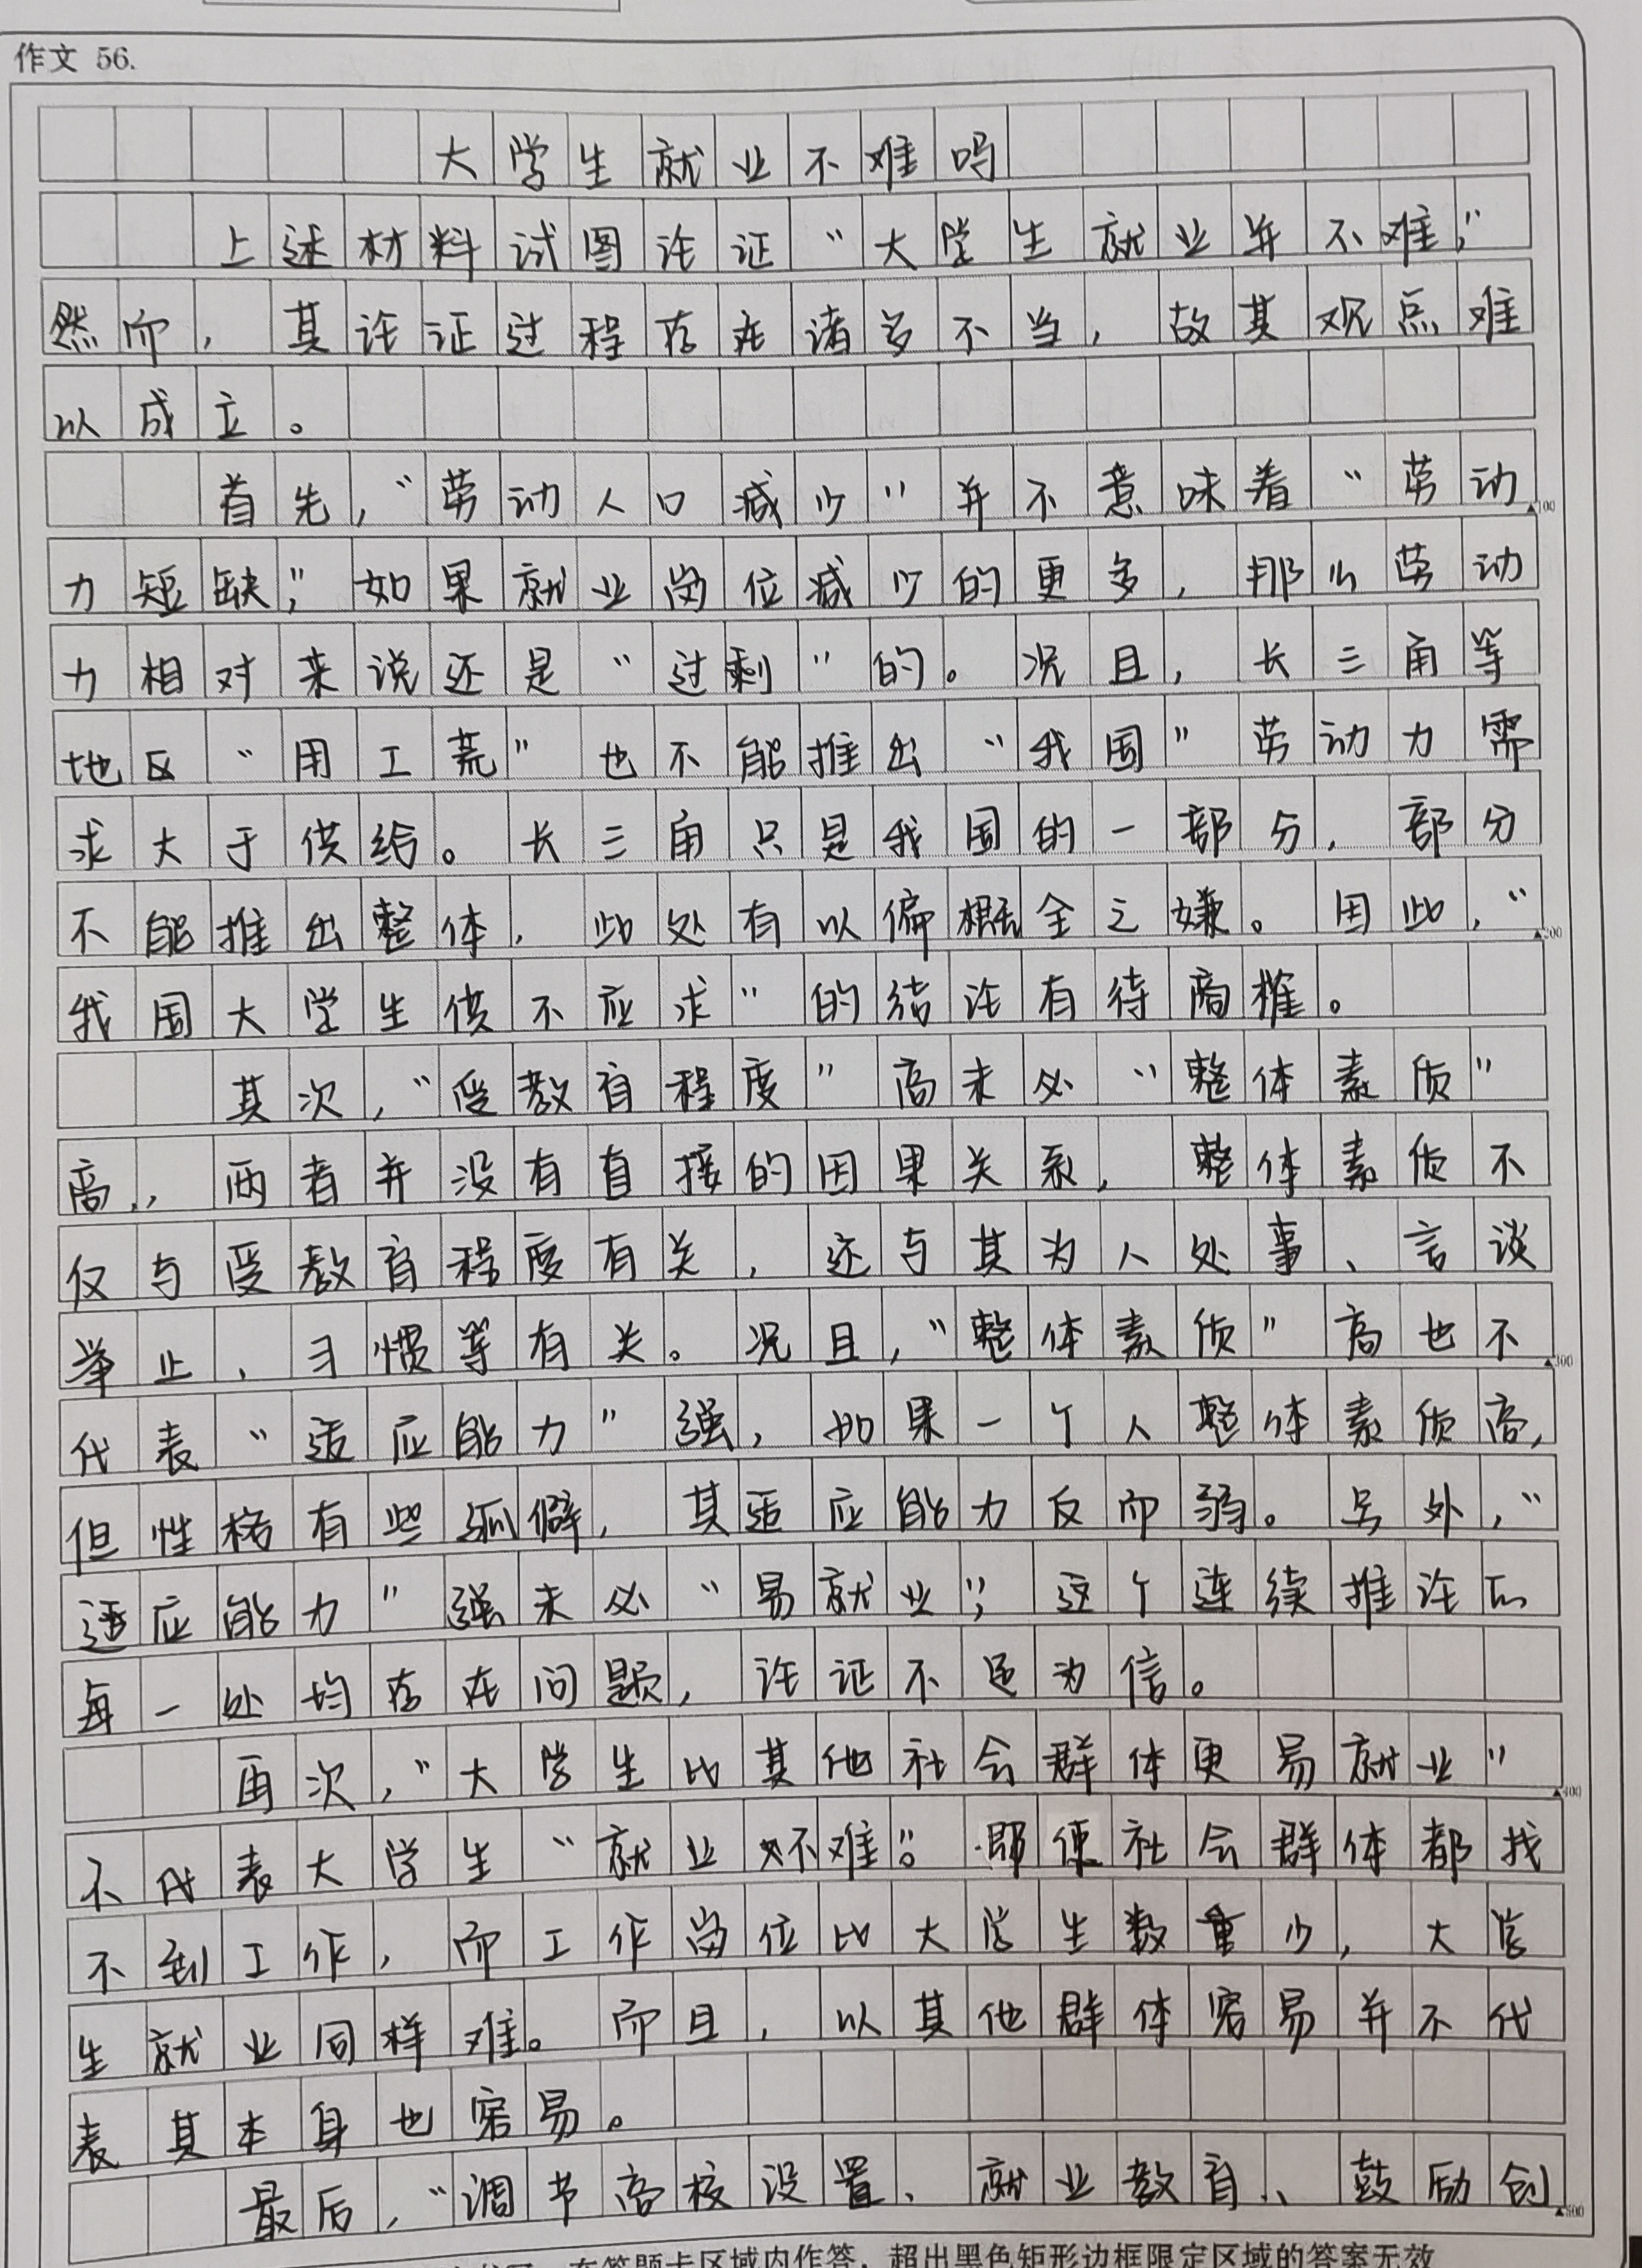 作文 56.
大学生就业不难吗
上述材料试图论证“大学生就业并不难”,
然而,其论证过程存在诸多不当,故其观点难
以成立。
首先,“劳动人口减少”并不意味着“劳动
100
力短缺”,如果就业岗位减少的更多,那么劳动
力相对来说还是“过剩”的。况且,长三角等
地区“用工荒”也不能推出“我国”劳动力需
求大于供给。长三角只是我国的一部分,部分
不能推出整体,此处有以偏概全之嫌。因此,“
200
我国大学生供不应求”的结论有待商榷。
其次,“受教育程度”高未必“整体素质”
高,两者并没有直接的因果关系,整体素质不
仅与受教育程度有关,还与其为人处事、言谈
举止、习惯等有关。况且,“整体素质”高也不
300
代表“适应能力”强,如果一个人整体素质高,
但性格有些孤僻,其适应能力反而弱。另外,“
适应能力”强未必“易就业”,这个连续推论的
每一处均存在问题,论证不足为信。
再次,“大学生比其他社会群体更易就业”
400
不代表大学生“就业不难”。即使社会群体都找
不到工作,而工作岗位比大学生数量少,大学
生就业同样难。而且,以其他群体容易并不代
表其本身也容易。
最后,“调节高校设置、就业教育、鼓励创
500
在答题卡区域内作答,超出黑色矩形边框限定区域的答案无效